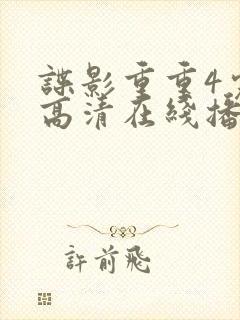 諜影重重4
高清在綫播
許前飛